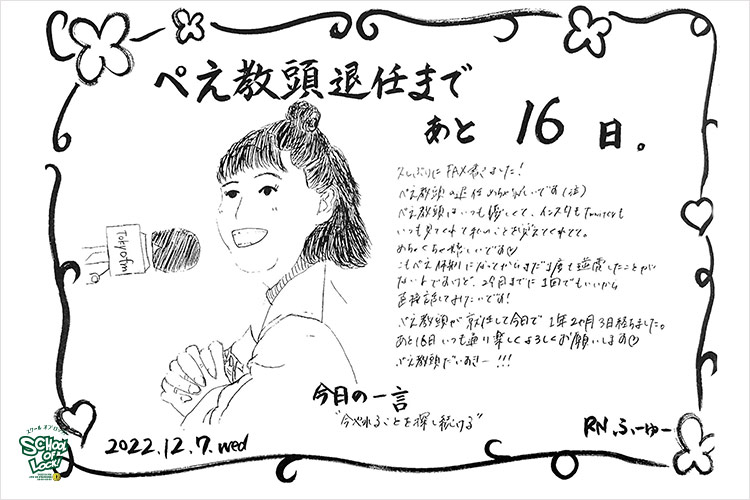 ぺえ教頭退任まで
あと 16 日。
久しぶりにFAX書きました!
ぺえ教頭の退任めちゃ寂しいです(泣)
ぺえ教頭はいつも優しくて、インスタもTwitterも
いつも見てくれて私のことを覚えてくれてて。
めちゃくちゃ嬉しいです♡
こもぺえ体制になってからまだ1度も逆電したことが
ないんですけど、29日までに1回でもいいから
直接話してみたいです!
ぺえ教頭が就任して今日で1年2ヶ月3日経ちました。
あと16日いつも通り楽しくよろしくお願いします♡
ぺえ教頭だいすきー!!!
Tokyofm
今日の一言
"今やれることを探し続ける"
2022.12.7.wed
RN ふーゆー
スクールオブロック!
SCHOOL
OF
LOCK!